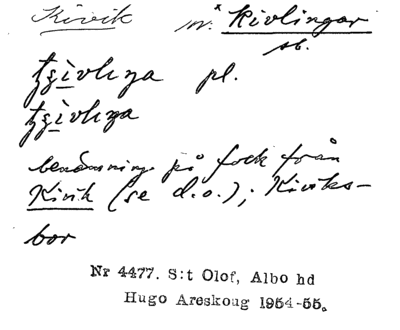 Kivik m. *kivlingar
sb.
pl.
benämning på folk från
Kivik (se d.o.); Kiviks-
bor
Nr 4477. S:t Olof, Albo hd
Hugo Areskoug 1954-55.